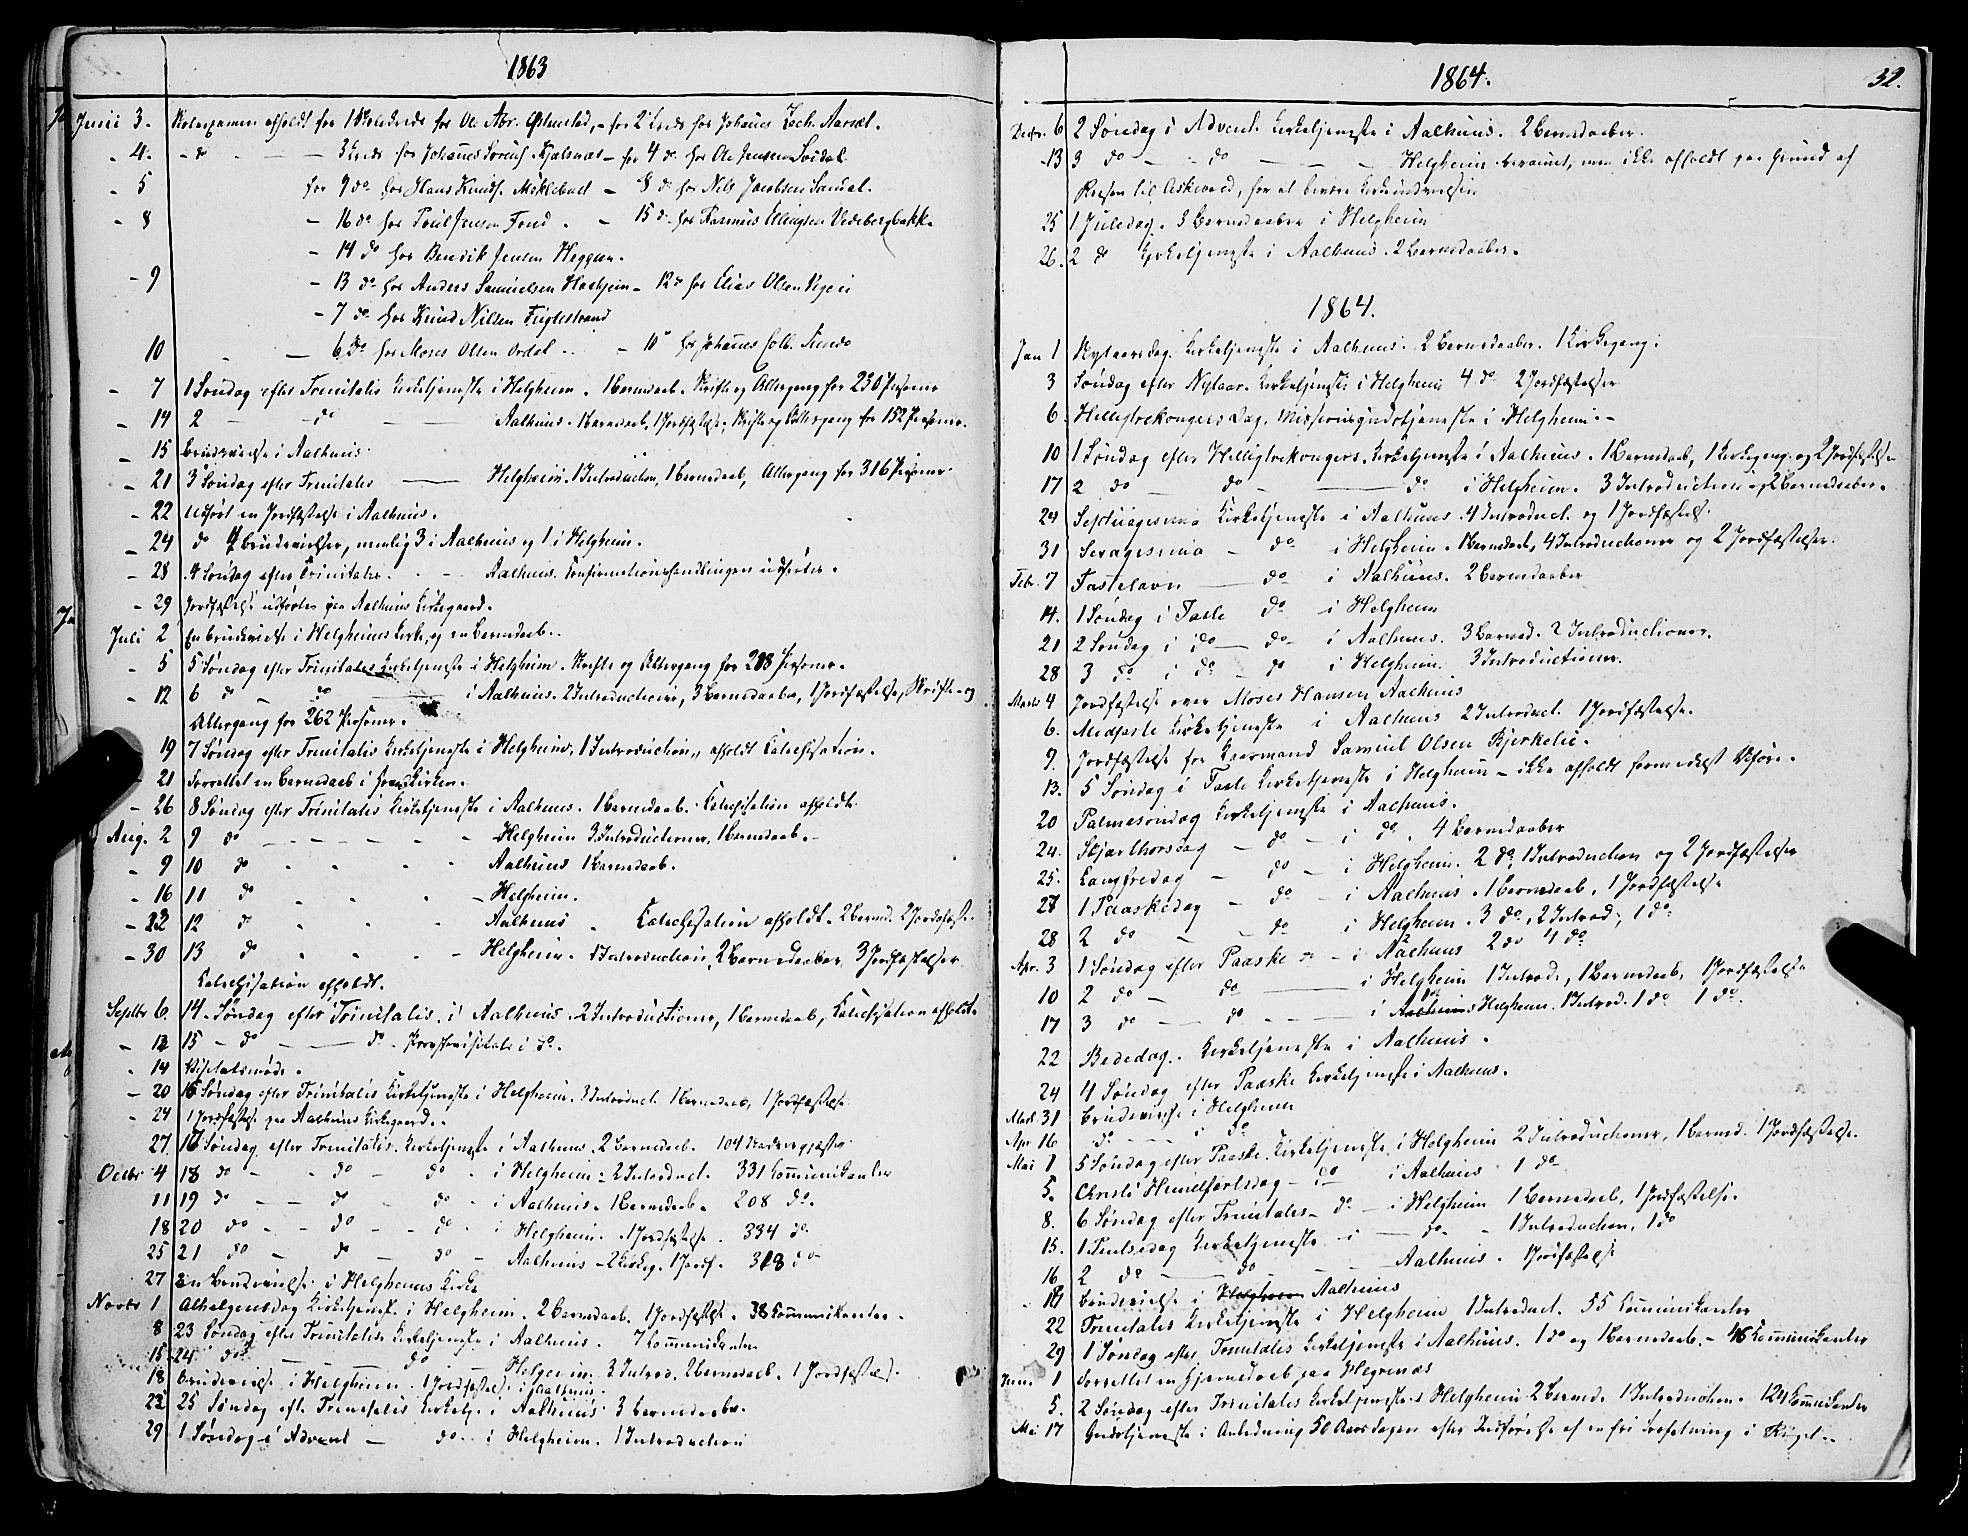 1863
Junii 3. Skoleexamen afholdt for 1 Skolekreds for Ole Abr. Ølmstad, – for 2 Kreds for Johanes Zach. Aarsæt.
- 4. - do - — 3 Kreds for Johanes Sørens. Kjøsnæs – for 4 do for Ole Jensen Sødal
- 5 for 9 do for Hans Knuds. Myklebust – 8 do for Nils Jacobsen Sandal.
- 8 – 16 do for Poul Jensen Fond. – 15 do for Rasmus Ellingsen Vedebergbakke
– 14 do for Bendik Jensen Heggen.
- 9 – 13 do for Anders Samuelsen Huskjem – 12 do for Elias Olsen
– 7 do for Knud Nilsen Fuglestrand
10 – 6 do for Moses Olsen Ordal .. – 10 for Johanes Colb. Sunde
- 7 1 Søndag efter Trinitatis Kirketjeneste i Helgheim. 1 Barnedaab. Skrifte og Altergang for 230 Personer
- 14 2 — do — Aalhuus. 1 Barnedaab, 1 Jordfæstelse, Skrifte og Altergang for 152 Personer.
- 15 Brudevielse i Aalhuus.
- 21 3 Søndag efter Trinitatis — Helgheim. 1 Introduction, 1 Barnedaab, Altergang for 316 Personer.
- 22 Udført en Jordfæstelse i Aalhuus.
- 24 do 4 Brudevielser, nemlig 3 i Aalhuus og 1 i Helgheim.
- 28 4 Søndag efter Trinitatis. - - Aalhuus. Confirmationshandlingen udførtes.
- 29 Jordfæstelse udførtes paa Aalhuus Kirkegaard.
Juli 2 En Brudevielse i Helgheims Kirke, og en Barnedaab.
- 5 5 Søndag efter Trinitatis Kirketjeneste i Helgheim. Skrifte og Altergang for 288 Personer.
- 12 6 do — do — i Aalhuus. 2 Introductioner, 3 Barnedaaber, 1 Jordfæstelse, Skrifte- og
Altergang for 262 Personer.
19 7 Søndag efter Trinitatis Kirketjeneste i Helgheim, 1 Introduction, afholdt Catechisation.
- 21 Forrettet en Barnedaab i Kirken.
- 26 8 Søndag efter Trinitatis Kirketjeneste i Aalhuus. 1 Barnedaab. Catechisation afholdt.
Aug. 2 9 do - - - - Helgheim 3 Introductioner, 1 Barnedaab. -
- 9 10 do - - - Aalhuus 1 Barnedaab.
- 16 11 do - - - Helgheim.
- 23 12 do - - Aalhuus. Catechisation afholdt. 2 Barned. 2 Jordfæst.
- 30 13 do - - - Helgheim. 1 Introduction, 2 Barnedaaber, 3 Jordfæstelser
Catechisation afholdt.
Septbr 6. 14. Søndag efter Trinitatis. i Aalhuus. 2 Introductioner, 1 Barnedaab, Catechisation afholdt.
- 13 15 - do - — do. Provstevisitats i do.
- 14 Visitatsmøde.
- 20 16 Søndag efter Trinitatis Kirketjeneste i Helgheim. 3 Introduct. 1 Barnedaab, 1 Jordfæstelse
- 24 1 Jordfæstelse paa Aalhuus Kirkegaard.
27. 17 Søndag efter Trinitatis. Kirketjeneste i Aalhuus. 2 Barnedaab. 104 Nadvergjæster
Octbr 4 18 do - - do - do - i Helgheim – 2 Introduct. 331 Communikanter
11 19 do - - do - do - i Aalhuus. 1 Barnedaab. 208 do.
18 20 do - - do - do - i Helgheim. 1 Jordfæstelse. 334 do.
25 21 do - do - do - Aalhuus – 2 Kirkeg. 1 Jordf. 318 do
27 En Brudevielse i Helgheims Kirke
Novbr 1 Alhelgensdag Kirketjeneste i Helgheim. 2 Barnedaab. 1 Jordfæstelse. 38 Communikanter.
8 23 Søndag efter Trinitatis Kirketjeneste i Aalhuus. 7 Communikanter
15 24 do — do — Helgheim. 3 Introd. 2 Barnedaab. 1 Jordfæstelse.
18 Brudevielse i Helgheim. 1 Jordfæstelse i Aalhuus.
22 25 Søndag eft. Trinitatis Kirketj. i Aalhuus. 3 Barnedaaber.
29 1 Søndag i Advent — do. i Helgheim. 1 Introduction
1864. 32.
Decbr. 6 2 Søndag i Advent. Kirketjeneste i Aalhuus. 2 Barnedaaber.
- 13 3 do — do — Helgheim berammet, men ikke afholdt paa Grund af
Reisen til Askevold, for at bivære Kirkeindvielsen
25 1 Juledag. 3 Barnedaaber i Helgheim
26. 2 do Kirketjeneste i Aalhuus. 2 Barnedaaber.
1864.
Jan 1 Nytaarsdag. Kirketjeneste i Aalhuus. 2 Barnedaaber. 1 Kirkegang.
3 Søndag efter Nytaar. Kirketjeneste i Helgheim 4 do 2 Jordfæstelser
6 Helligtrekongers Dag. Missionsgudstjeneste i Helgheim. –
10 1 Søndag efter Helligtrekongers. Kirketjeneste i Aalhuus. 1 Barnedaab, 1 Kirkegang og 2 Jordfæstelser
17 2 do — do — do i Helgheim. 3 Introduction og 2 Barnedaaber.
24 Septuagesima Kirketjeneste i Aalhuus 4 Introduct. og 1 Jordfæstelse.
31 Sexagesima — do i Helgheim. 1 Barnedaab, 4 Introductioner og 2 Jordfæstelser.
Febr. 7 Fastelavn — do i Aalhuus. 2 Barnedaaber
14. 1 Søndag i Faste do i Helgheim
21 2 Søndag i do — do — i Aalhuus. 3 Barned. 2 Introductioner.
28 3 do i do — do i Helgheim. 3 Introductioner.
Marts 4 Jordfæstelse over Moses Hansen Aalhuus
6. Midfaste Kirketjeneste i Aalhuus 2 Introduct. 1 Jordfæstelse.
9. Jordfæstelse for Kaarmand Samuel Olsen Bjerkelie.
13. 5 Søndag i Faste Kirketjeneste i Helgheim – ikke afholdt formedelst Uføre.
20 Palmesøndag Kirketjeneste i Aalhuus.
24. Skjærthorsdag — do — i do. 4 Barnedaaber
25. Langfredag — do — i Helgheim. 2 do, 1 Introduction og 2 Jordfæstelser
27 1 Paaskedag — do — i Aalhuus. 1 Barnedaab, 1 Jordfæstelse
28 2 do - - do i Helgheim. 3 do, 2 Introd; 1 do.
Apr. 3 1 Søndag efter Paaske do – i Aalhuus 2 do 4 do
10 2 do — do — i Helgheim 1 Introd., 1 Barnedaab, 1 Jordfæstelse
17 3 do — do — i Aalhuus Helgheim. 1 Introd. 1 do 1 do.
22 Bededag. Kirketjeneste i Aalhuus.
24 4 Søndag efter Paaske Kirketjeneste i Aalhuus.
Marts 31 Brudevielse i Helgheim
Apr 16 do - - - i do
Mai 1 5 Søndag efter Paaske. Kirketjeneste i Helgheim 2 Introductioner, 1 Barned. 1 Jordfæstelse.
5. Christi Himmelfartsdag – do i Aalhuus 1 do
8. 6 Søndag efter Trinitatis – do — i Helgheim 1 Barnedaab, 1 Jordfæstelse.
15. 1 Pintsedag Kirketjeneste i — do – 1 Introduction, 1 do
16 2 do — do – Aalhuus. 1 Jordfæstelse
18 Brudevielse i Helgheim Aalhuus
22 Trinitatis Kirketjeneste i Helgheim 1 Introduct. 55 Communikanter
29 1 Søndag efter Trinitatis Kirketjeneste i Aalhuus. 1 do og 1 Barnedaab. – 46 Communikanter
Juni 1 Forrettet en Hjemmedaab paa Hegrenæs
5. 2 Søndag efter Trinitatis Kirketjeneste i Helgheim 2 Barned. 1 Introduction. 124 Communikanter
Mai 17 Gudstjeneste i Anledning 50 Aarsdagen efter Indførelse af en fri Forfatning i Riget.